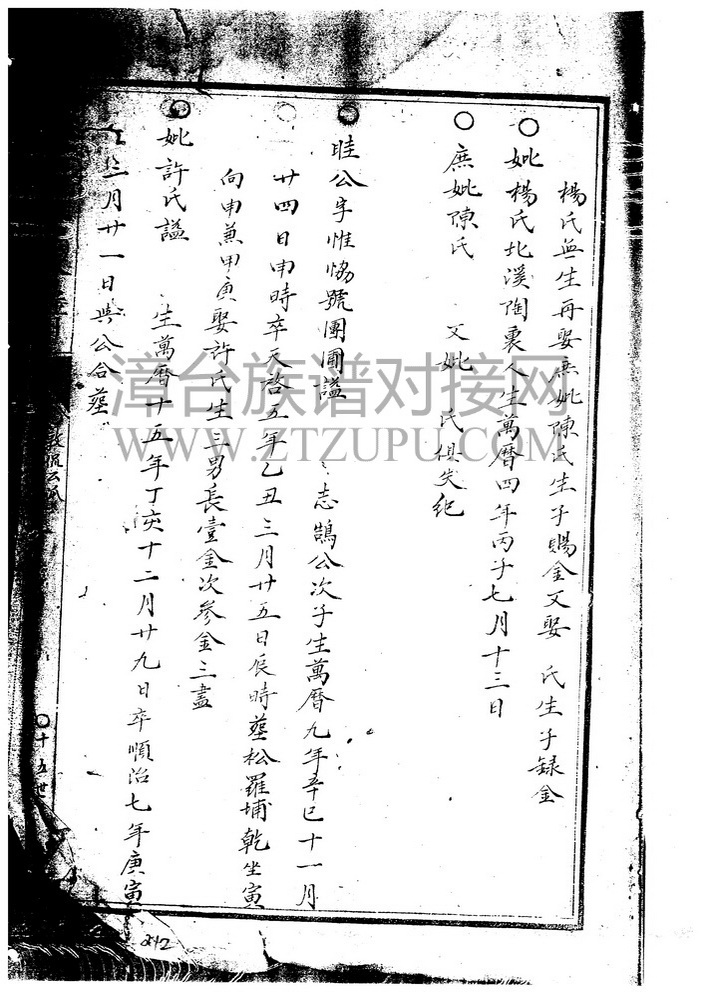 楊氏無生再娶庶妣陳氏生子賜金又娶 氏生子録金
○妣楊氏北溪陶裏人生萬曆四年丙子七月十三日
○庶妣陳氏 又妣 氏俱失紀
眭公字惟恊號團圃謚 志鵠公次子生萬曆九年辛巳十一月
廿四日申時卒天啓五年乙丑三月廿五日辰時塟松羅埔乾坐寅
向申兼甲庚娶許氏生三男長壹金次參金三盡
妣許氏謚 生萬曆十五年丁亥十二月廿九日卒順治七年庚寅
三月廿一日與公合塟
○十五世
242
漳台族谱对接网
WWW.ZTZUPU.COM